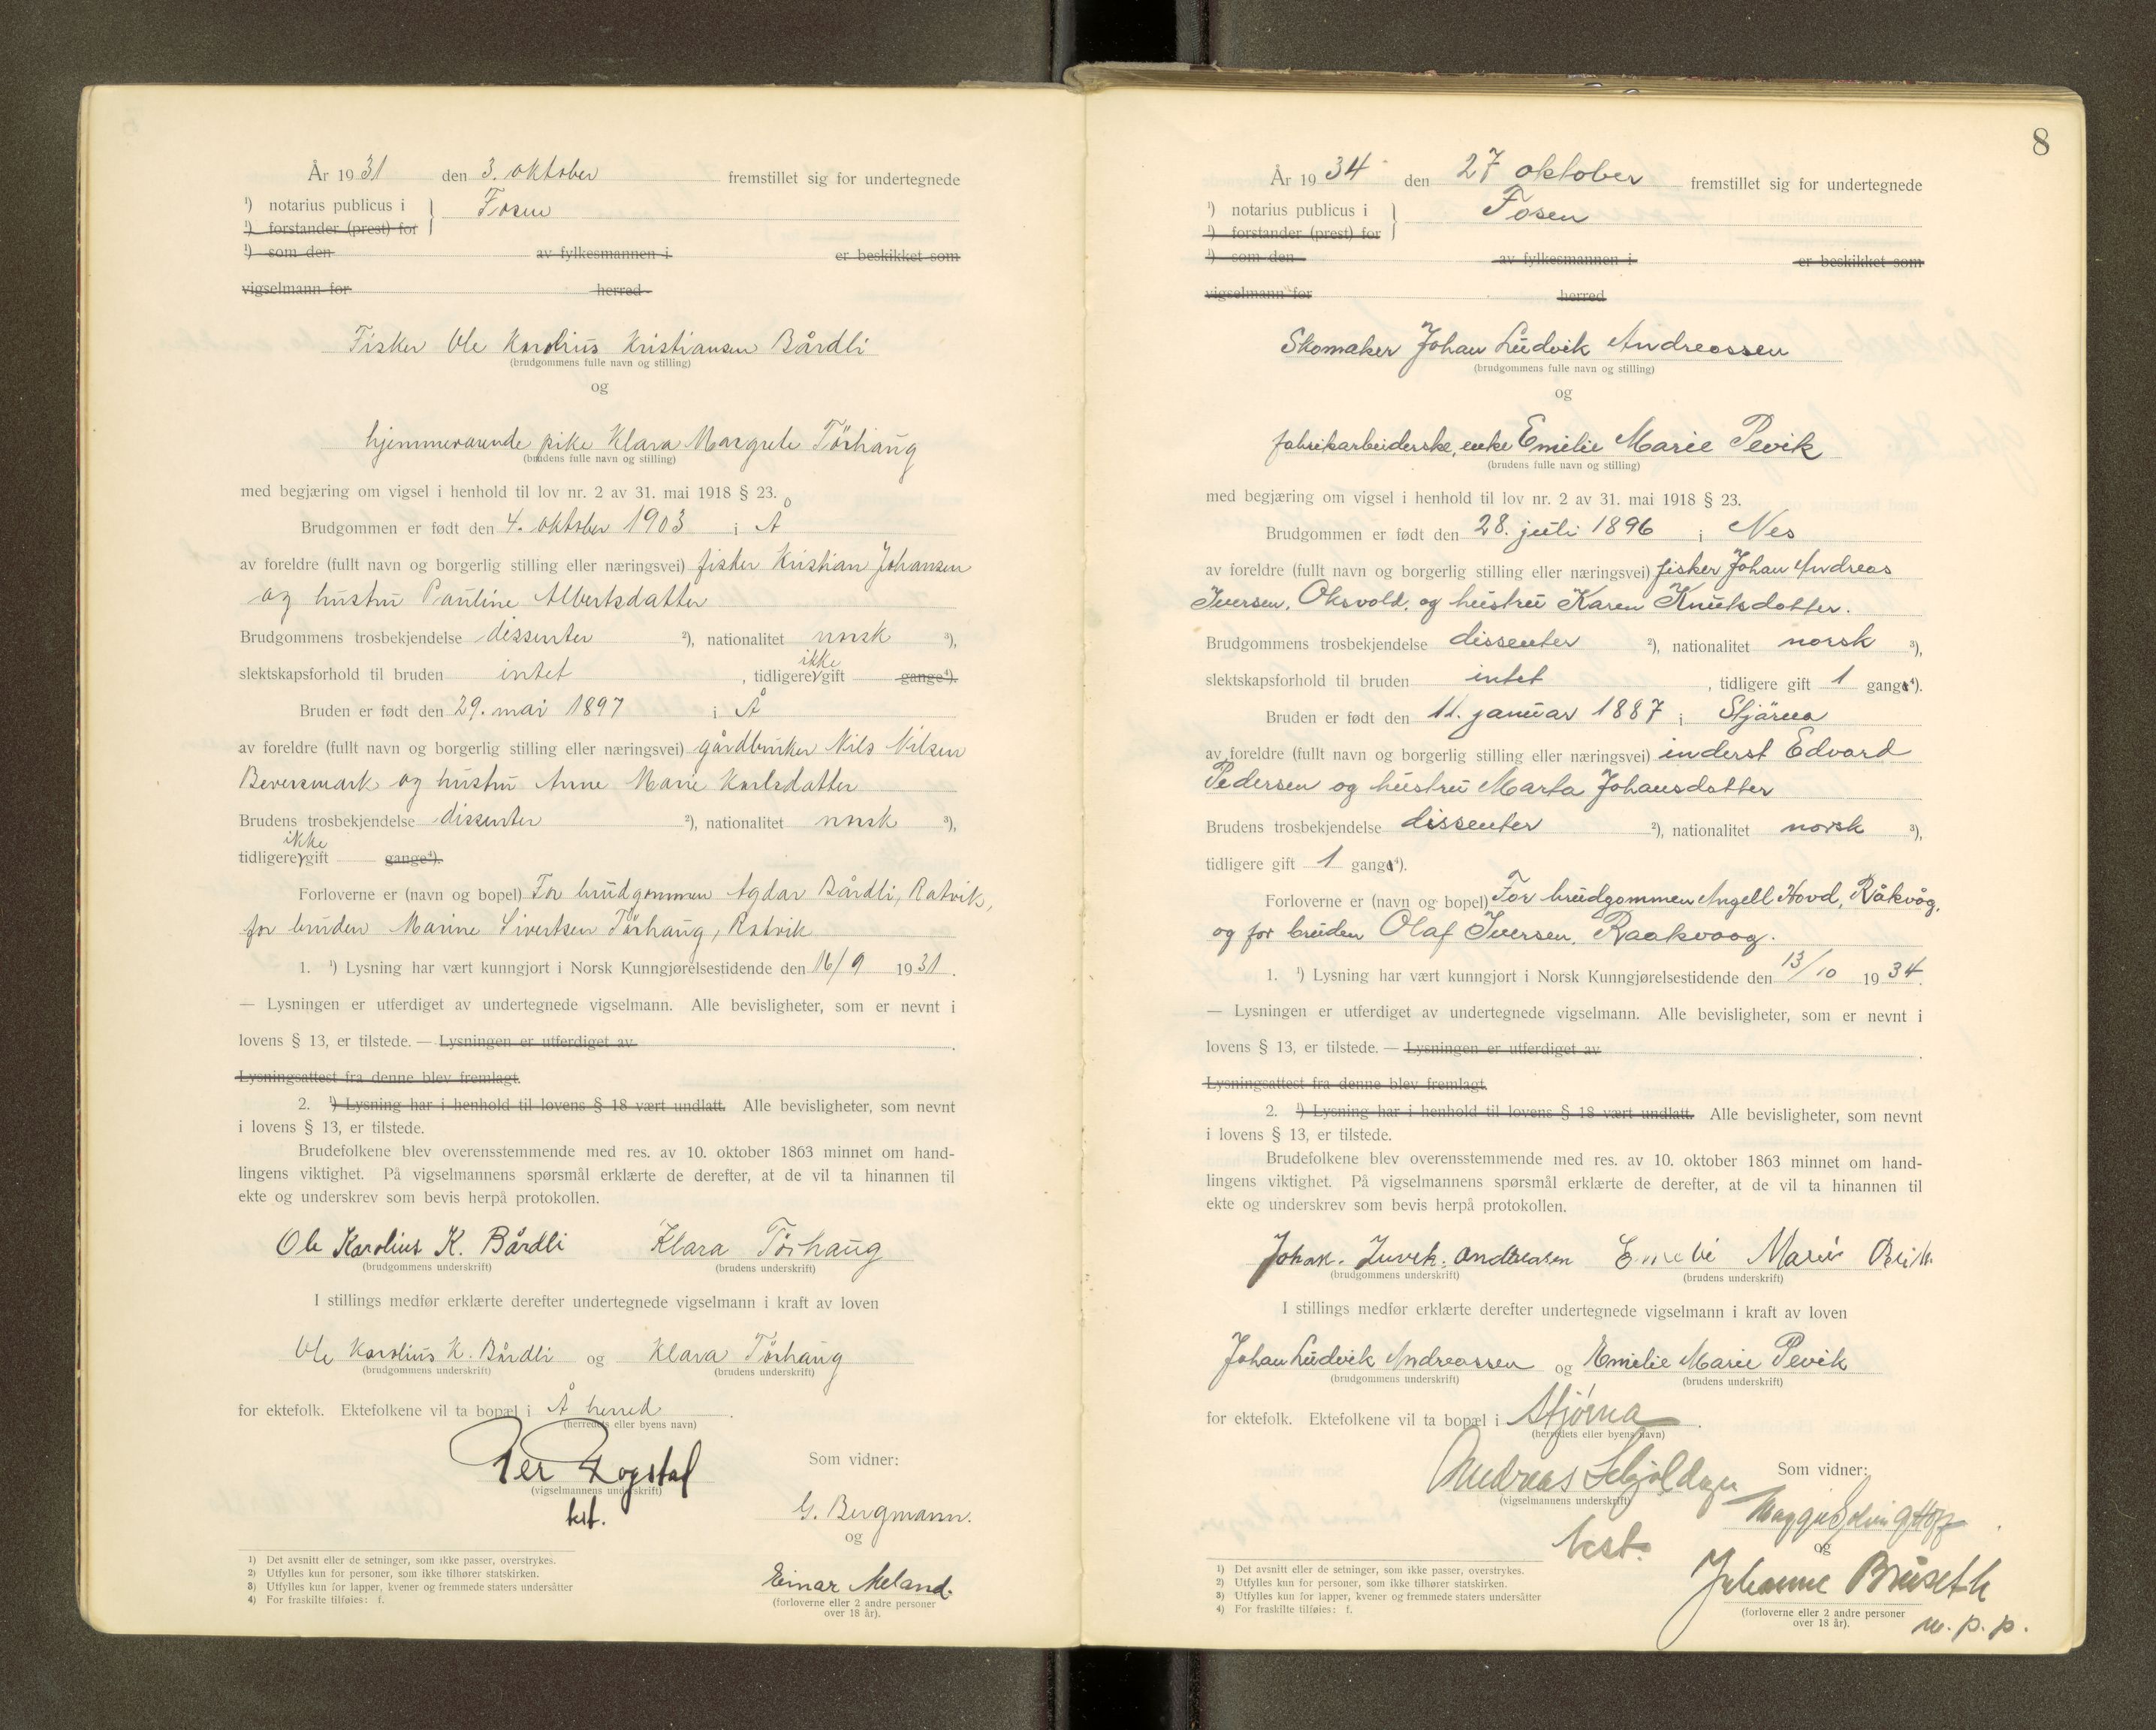 År 1931 den 3. oktober fremstillet sig for undertegnede
¹) notarius publicus i Fosen
¹) forstander (prest) for
¹) som den av fylkesmannen i er beskikket som
vigselmann for herred
Fisker Ole Karolius Kristiansen Bårdli
(brudgommens fulle navn og stilling)
og
hjemmeværende pike Klara Margrete Törhaug
(brudens fulle navn og stilling)
med begjæring om vigsel i henhold til lov nr. 2 av 31. mai 1918 § 23.
Brudgommen er født den 4. oktober 1903 i Å
av foreldre (fullt navn og borgerlig stilling eller næringsvei) fisker Kristian Johansen
og hustru Pauline Albertsdatter
Brudgommens trosbekjendelse dissenter ²), nationalitet norsk ³),
slektskapsforhold til bruden intet , tidligere ikke gift gange⁴).
Bruden er født den 29. mai 1897 i Å
av foreldre (fullt navn og borgerlig stilling eller næringsvei) gårdbruker Nils Nilsen
Beversmark og hustru Anne Marie Karlsdatter
Brudens trosbekjendelse dissenter ²), nationalitet norsk ³),
tidligere ikke gift gange⁴).
Forloverne er (navn og bopel) For brudgommen Agdar Bårdli, Ratvik,
for bruden Marine Sivertsen Törhaug, Ratvik
1. ¹) Lysning har vært kunngjort i Norsk Kunngjørelsestidende den 16/9 1931.
— Lysningen er utferdiget av undertegnede vigselmann. Alle bevisligheter, som er nevnt i
lovens § 13, er tilstede. — Lysningen er utferdiget av .
Lysningsattest fra denne blev fremlagt.
2. ¹) Lysning har i henhold til lovens § 18 vært undlatt. Alle bevisligheter, som nevnt
i lovens § 13, er tilstede.
Brudefolkene blev overensstemmende med res. av 10. oktober 1863 minnet om hand-
lingens viktighet. På vigselmannens spørsmål erklærte de derefter, at de vil ta hinannen til
ekte og underskrev som bevis herpå protokollen.
Ole Karolius K. Bårdli Klara Törhaug
(brudgommens underskrift) (brudens underskrift)
I stillings medfør erklærte derefter undertegnede vigselmann i kraft av loven
Ole Karolius K. Bårdli og Klara Törhaug
(brudgommens underskrift) (brudens underskrift)
for ektefolk. Ektefolkene vil ta bopæl i Å herred .
(herredets eller byens navn)
Per Rogstad
(vigselmannens underskrift)
kst.
Som vidner:
G. Bergmann.
og
Einar Meland.
(forloverne eller 2 andre personer
over 18 år).
1) Det avsnitt eller de setninger, som ikke passer, overstrykes.
2) Utfylles kun for personer, som ikke tilhører statskirken.
3) Utfylles kun for lapper, kvener og fremmede staters undersåtter
4) For fraskilte tilføies: f.
8
År 1934 den 27 oktober fremstillet sig for undertegnede
¹) notarius publicus i Fosen
¹) forstander (prest) for
¹) som den av fylkesmannen i er beskikket som
vigselmann for herred
Skomaker Johan Ludvik Andreassen
(brudgommens fulle navn og stilling)
og
fabrikarbeiderske, enke Emilie Marie Pevik
(brudens fulle navn og stilling)
med begjæring om vigsel i henhold til lov nr. 2 av 31. mai 1918 § 23.
Brudgommen er født den 28. juli 1896 i Nes
av foreldre (fullt navn og borgerlig stilling eller næringsvei) fisker Johan Andreas
Iversen, Oksvold, og hustru Karen Knutsdatter.
Brudgommens trosbekjendelse dissenter ²), nationalitet norsk ³),
slektskapsforhold til bruden intet , tidligere gift 1 gang⁴).
Bruden er født den 11. januar 1887 i Stjärna
av foreldre (fullt navn og borgerlig stilling eller næringsvei) inderst Edvard
Pedersen og hustru Marta Johansdatter
Brudens trosbekjendelse dissenter ²), nationalitet norsk ³),
tidligere gift 1 gang⁴).
Forloverne er (navn og bopel) For brudgommen Angell Hovd, Råkvåg,
og for bruden Olaf Iversen, Raakvaag.
1. ¹) Lysning har vært kunngjort i Norsk Kunngjørelsestidende den 13/10 1934.
— Lysningen er utferdiget av undertegnede vigselmann. Alle bevisligheter, som er nevnt i
lovens § 13, er tilstede. — Lysningen er utferdiget av .
Lysningsattest fra denne blev fremlagt.
2. ¹) Lysning har i henhold til lovens § 18 vært undlatt. Alle bevisligheter, som nevnt
i lovens § 13, er tilstede.
Brudefolkene blev overensstemmende med res. av 10. oktober 1863 minnet om hand-
lingens viktighet. På vigselmannens spørsmål erklærte de derefter, at de vil ta hinannen til
ekte og underskrev som bevis herpå protokollen.
Johan. Andreasen Emeli Marie
(brudgommens underskrift) (brudens underskrift)
I stillings medfør erklærte derefter undertegnede vigselmann i kraft av loven
Johan Ludvik Andreassen og Emilie Marie Pevik
(brudgommens underskrift) (brudens underskrift)
for ektefolk. Ektefolkene vil ta bopæl i Stjørna .
(herredets eller byens navn)
Andreas
(vigselmannens underskrift)
kst.
Som vidner:
og
Johanne Bruseth
(forloverne eller 2 andre personer
over 18 år).
m. p. p.
1) Det avsnitt eller de setninger, som ikke passer, overstrykes.
2) Utfylles kun for personer, som ikke tilhører statskirken.
3) Utfylles kun for lapper, kvener og fremmede staters undersåtter
4) For fraskilte tilføies: f.